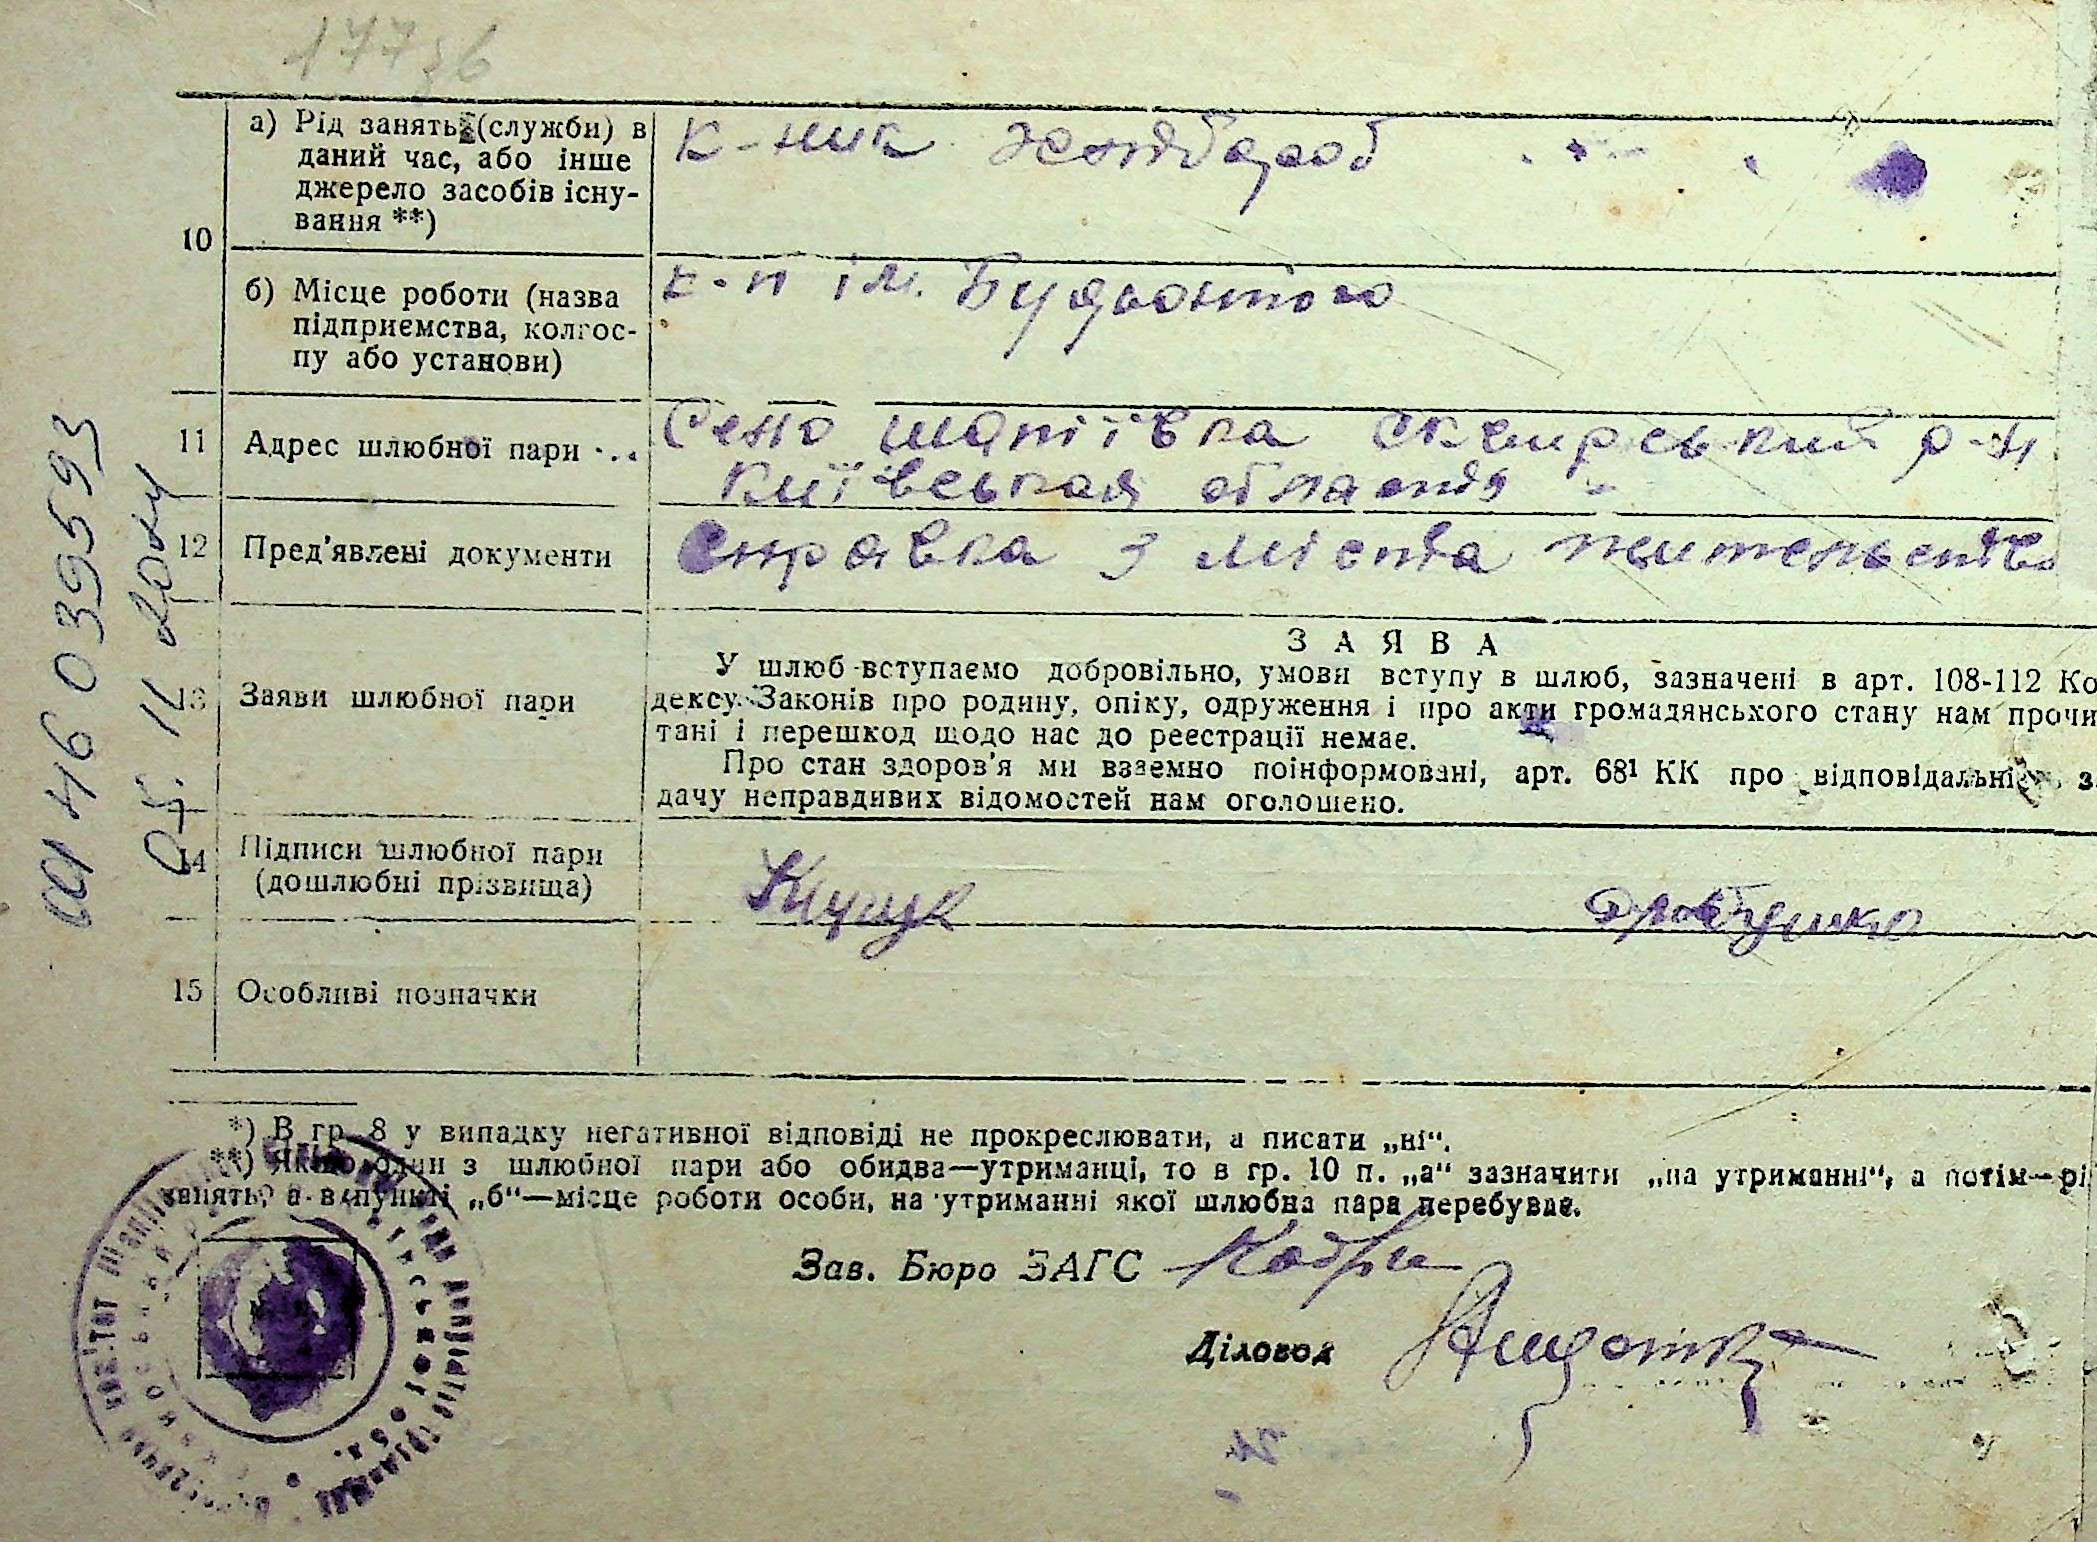 177
10
а) Рід занять (служби) в
даний час, або інше
джерело засобів існу-
вання **)
к-ник хлібороб
б) Місце роботи (назва
підприємства, колгос-
пу або установи)
к-п ім. Будьонного
11
Адрес шлюбної пари ...
Село Шапіївка Сквирський р-н
Київськая область
12
Пред'явлені документи
Справка з міста жительства
13
Заяви шлюбної пари
ЗАЯВА
У шлюб вступаємо добровільно, умови вступу в шлюб, зазначені в арт. 108-112 Ко
дексу Законів про родину, опіку, одруження і про акти громадянського стану нам прочи
тані і перешкод щодо нас до реєстрації немає.
Про стан здоров'я ми взаємно поінформовані, арт. 68¹ КК про відповідальність з
дачу неправдивих відомостей нам оголошено.
14
Підписи шлюбної пари
(дошлюбні прізвища)
Кущук
15
Особливі позначки
*) В гр. 8 у випадку негативної відповіді не прокреслювати, а писати „ні“.
**) Якщо один з шлюбної пари або обидва—утриманці, то в гр. 10 п. „а“ зазначити „на утриманні“, а потім—рі
занять, а в пункті „б“—місце роботи особи, на утриманні якої шлюбна пара перебуває.
Зав. Бюро ЗАГС
Діловод
46 039593